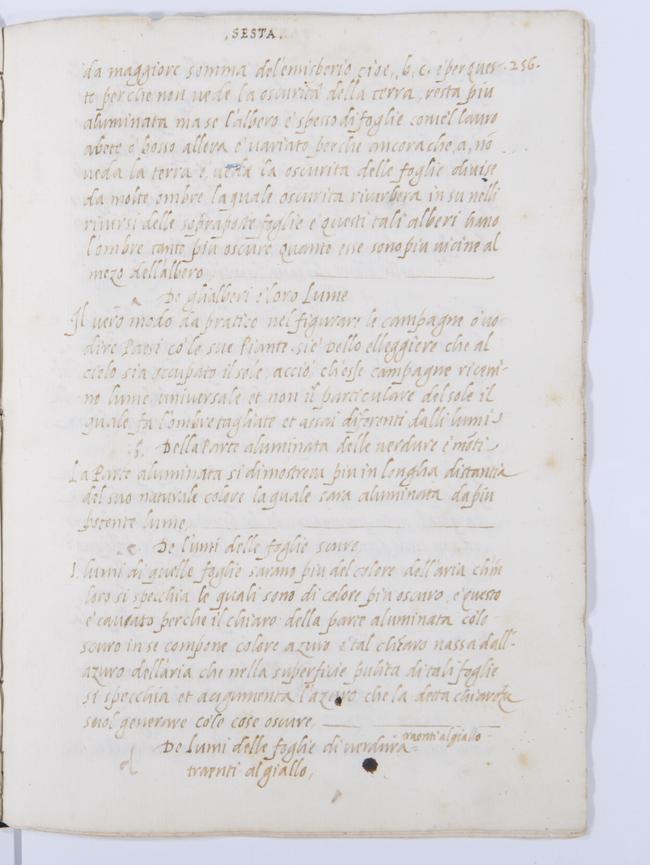 .SESTA.
da maggiore somma del'emisberio, cioe, .b.c. e per ques- .256.
to perche non vede la oscurita della terra, resta piu
aluminata ma se l'albero è spesso di foglie com'el lauro
abete o bosso allora e variato perche ancora che ,a, nō
veda la terra e veda la oscurita delle foglie diuise
da molte ombre la quale oscurita riuerbera in su nelli
riuersi delle sopraposte foglie e questi tali alberi hano
l'ombre tanto piu oscure quanto esse sono piu uicine al
mezo dell'albero
De gli alberi e loro Lume
Il uero modo da pratico nel figurare le campagne o uo
dire Paesi co' le sue Piante. si è dello elleggiere che al
cielo sia occupato il sole, acciò ch'esse campagne riceui-
no lume uniuersale et non il particulare del sole il
quale fa l'ombre tagliate et assai diferenti dalli lumi
Della Parte aluminata delle verdure e mōti
La Parte aluminata si dimostrera piu in longha distantia
del suo naturale colore la quale sara aluminata da piu
potente lume,
De lumi delle foglie scure,
I lumi di quelle foglie sarano piu del colore dell'aria ch'in
loro si specchia le quali sono di colore piu oscuro, e questo
è causato perche il chiaro della parte aluminata colo
scuro in se compone colore azuro e tal chiaro nassa dall'-
azuro dell'aria che nella superficie pulita di tali foglie
si specchia et augumenta l'azuro che la detta chiareza
suol generare co'le cose oscure,
De lumi delle foglie di verdura traenti al giallo
traenti al giallo,